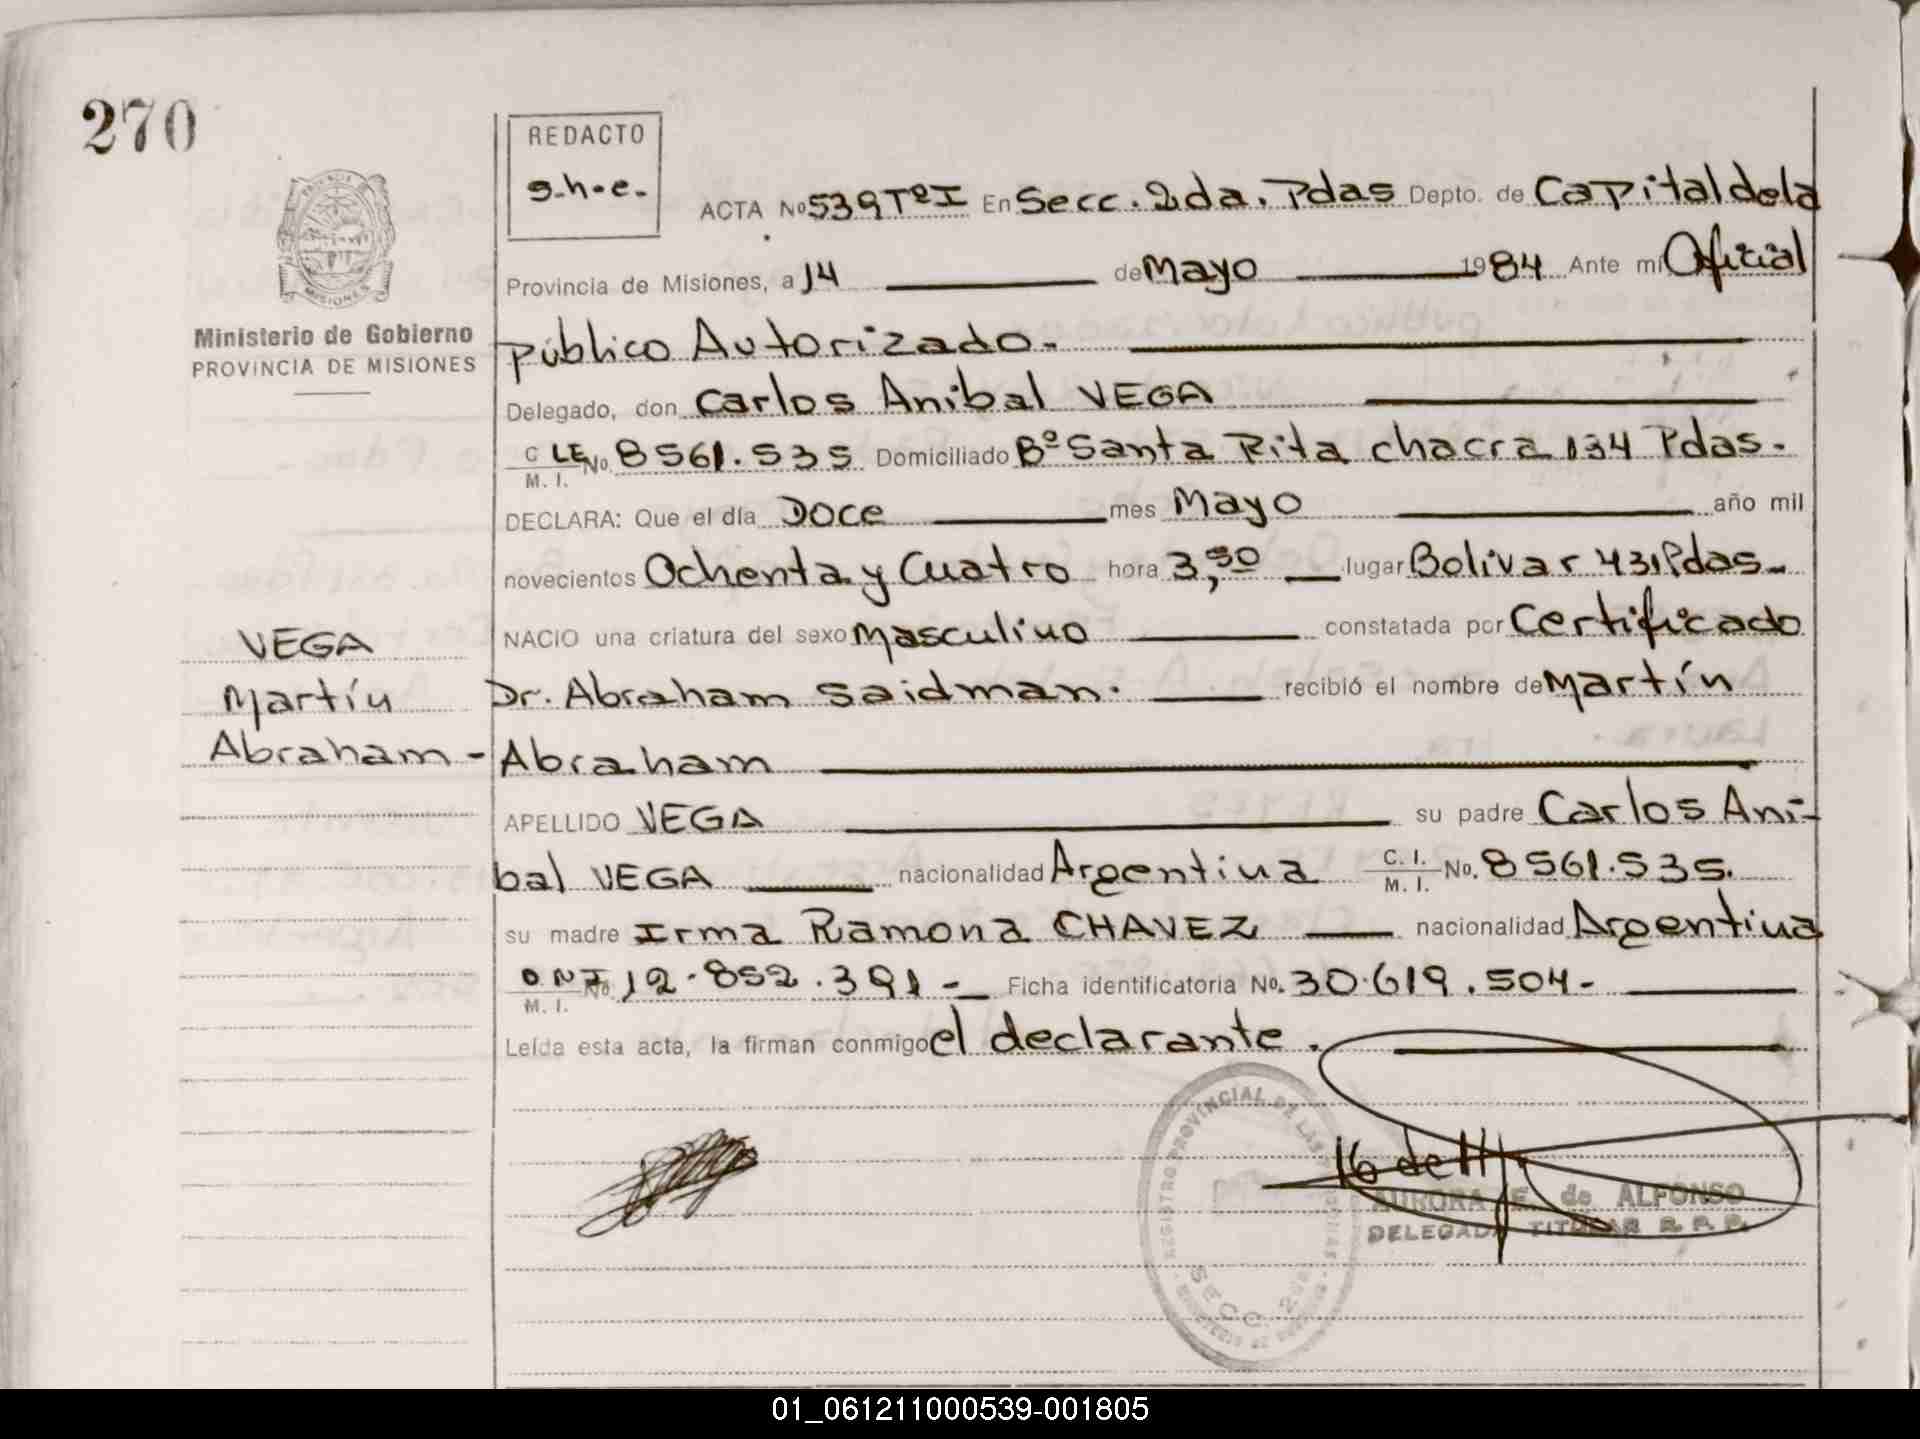 270
REDACTO
g.h.e.
ACTA Nº 539 Tº I En Secc. 2da. Pdas Depto. de Capital de la
Provincia de Misiones, a 14 de Mayo 1984 Ante mi Oficial
PROVINCIA
MISIONES
Ministerio de Gobierno
PROVINCIA DE MISIONES
público Autorizado.
Delegado, don Carlos Anibal VEGA
C LE No. 8561.535 Domiciliado Bº Santa Rita chacra 134 Pdas.
M. I.
DECLARA: Que el día Doce mes Mayo año mil
novecientos Ochenta y Cuatro hora 3,30 lugar Bolivar 431 Pdas.
NACIO una criatura del sexo Masculino constatada por Certificado
VEGA
Martín
Abraham -
Dr. Abraham Saidman. recibió el nombre de Martín
Abraham
APELLIDO VEGA su padre Carlos Ani-
bal VEGA nacionalidad Argentina C. I. No. 8561.535.
M. I.
su madre Irma Ramona CHAVEZ nacionalidad Argentina
DNI No 12.852.391 - Ficha identificatoria No. 30.619.504-
M. I.
Leída esta acta, la firman conmigo el declarante.
REGISTRO PROVINCIAL DE LAS
SECC. 2da
AURORA E. de ALFONSO
DELEGADA TITULAR R. P. P.
01_061211000539-001805